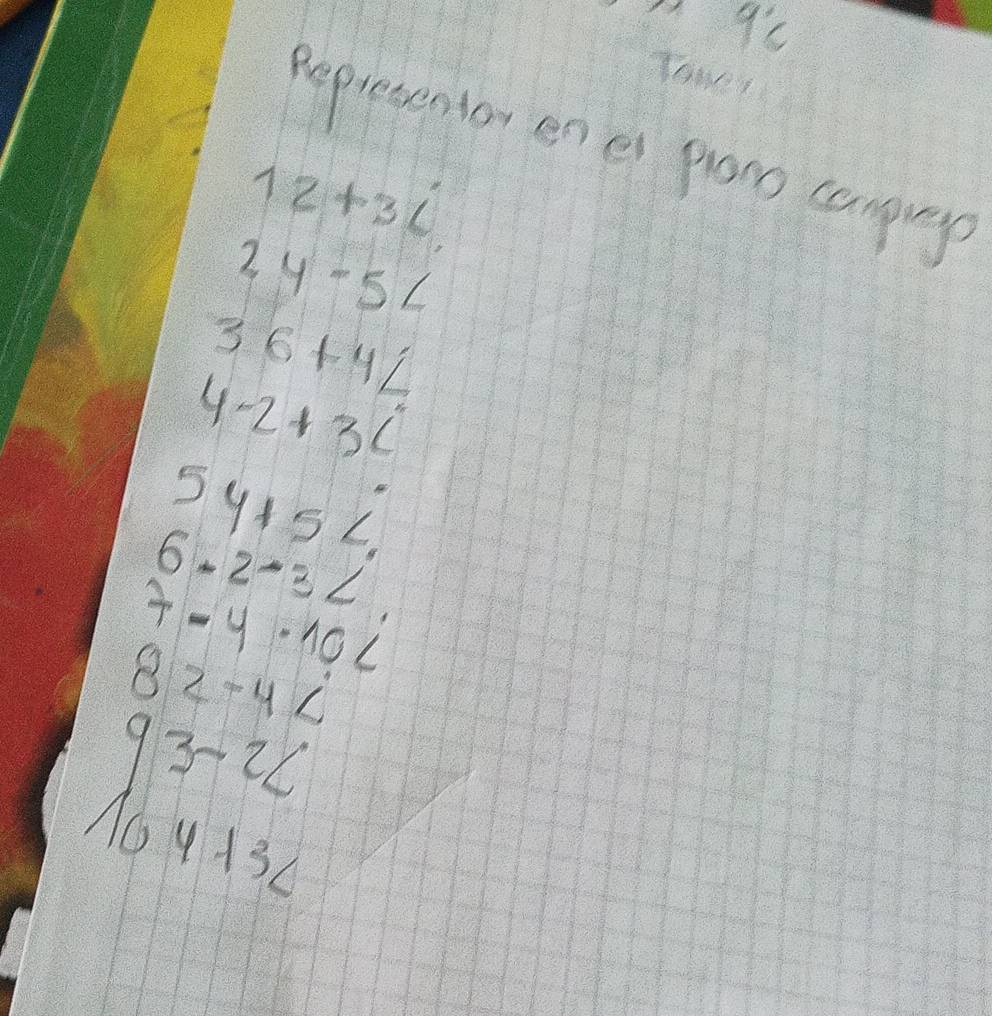 9°c
Representar en el plano complejo
1 2+3i
2 4-5i
3 6+4i
4 -2+3i
5 4+5i
6 -2-3i
7 -4-10i
8 2-4i
9 3-2i
10 4+3i